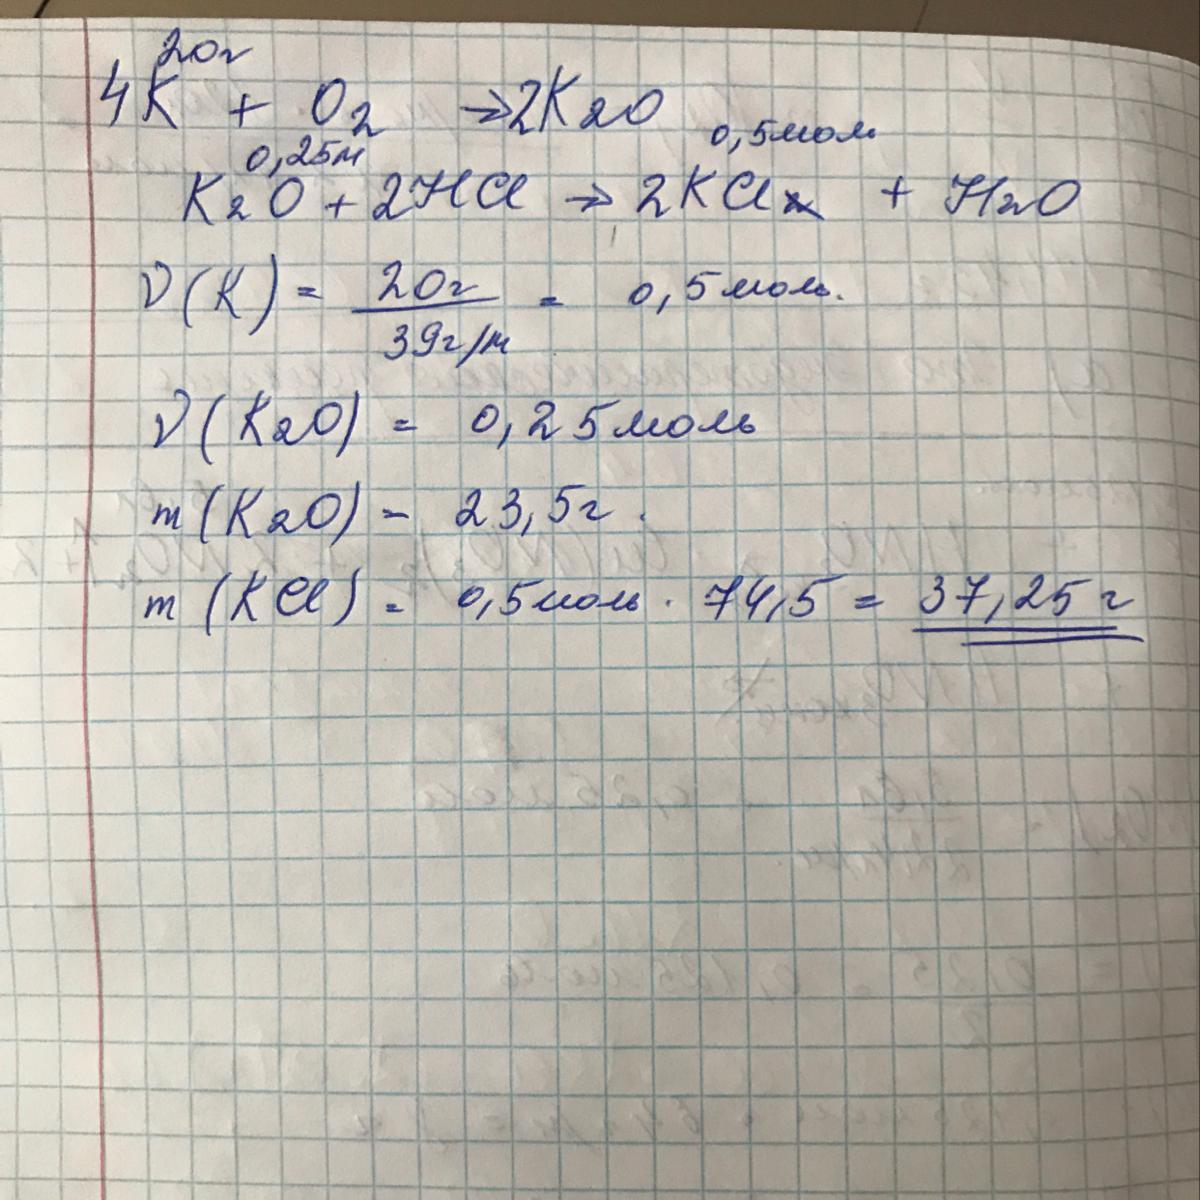 20г
4K + O2 → 2K2O
0,25м 0,5мол
K2O + 2HCl → 2KCl + H2O
ν(K) = 20г/39г/м = 0,5моль.
ν(K2O) = 0,25моль
m(K2O) = 23,5г.
m(KCl) = 0,5моль · 74,5 = 37,25г